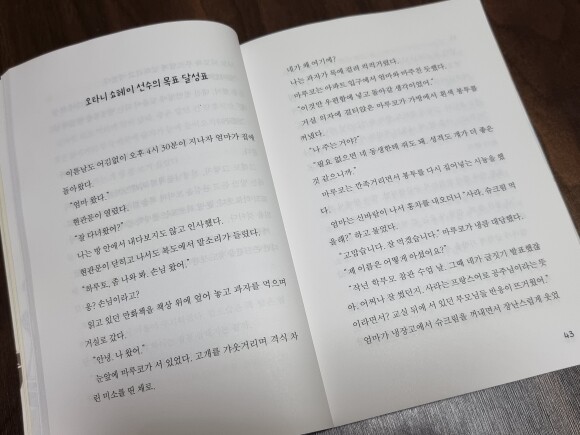 오타니 쇼헤이 선수의 목표 달성표
이튿날도 어김없이 오후 4시 30분이 지나자 엄마가 집에
돌아왔다.
"엄마 왔다."
현관문이 열렸다.
"잘 다녀왔어?"
나는 방 안에서 내다보지도 않고 인사했다.
현관문이 닫히고 나서도 복도에서 발소리가 들렸다.
"하루토, 좀 나와 봐. 손님 왔어."
응? 손님이라고?
읽고 있던 만화책을 책상 위에 엎어 놓고 과자를 먹으며
거실로 갔다.
"안녕. 나 왔어."
눈앞에 마루코가 서 있었다. 고개를 갸웃거리며 격식 차
린 미소를 띤 채로.
네가 왜 여기에?
나는 과자가 목에 걸려 캑캑거렸다.
마루코는 아파트 입구에서 엄마와 마주친 듯했다.
"이것만 우편함에 넣고 돌아갈 생각이었어."
거실 의자에 걸터앉은 마루코가 가방에서 흰색 봉투를
꺼냈다.
"나 주는 거야?"
"필요 없으면 네 동생한테 줘도 돼. 성격도 걔가 더 좋은
것 같으니까."
마루코는 깐족거리면서 봉투를 다시 집어넣는 시늉을 했
다.
엄마는 신바람이 나서 홍차를 내오더니 "사라, 슈크림 먹
을래?" 하고 물었다.
"고맙습니다. 잘 먹겠습니다." 마루코가 냉큼 대답했다.
"제 이름은 어떻게 아셨어요?"
"작년 학부모 참관 수업 날, 그때 네가 글짓기 발표했잖
아. 어찌나 잘 썼던지. 사라는 프랑스어로 공주님이라는 뜻
이라면서? 교실 뒤에 서 있던 부모님들 반응이 뜨거웠어."
엄마가 냉장고에서 슈크림을 꺼내면서 장난스럽게 웃었
43